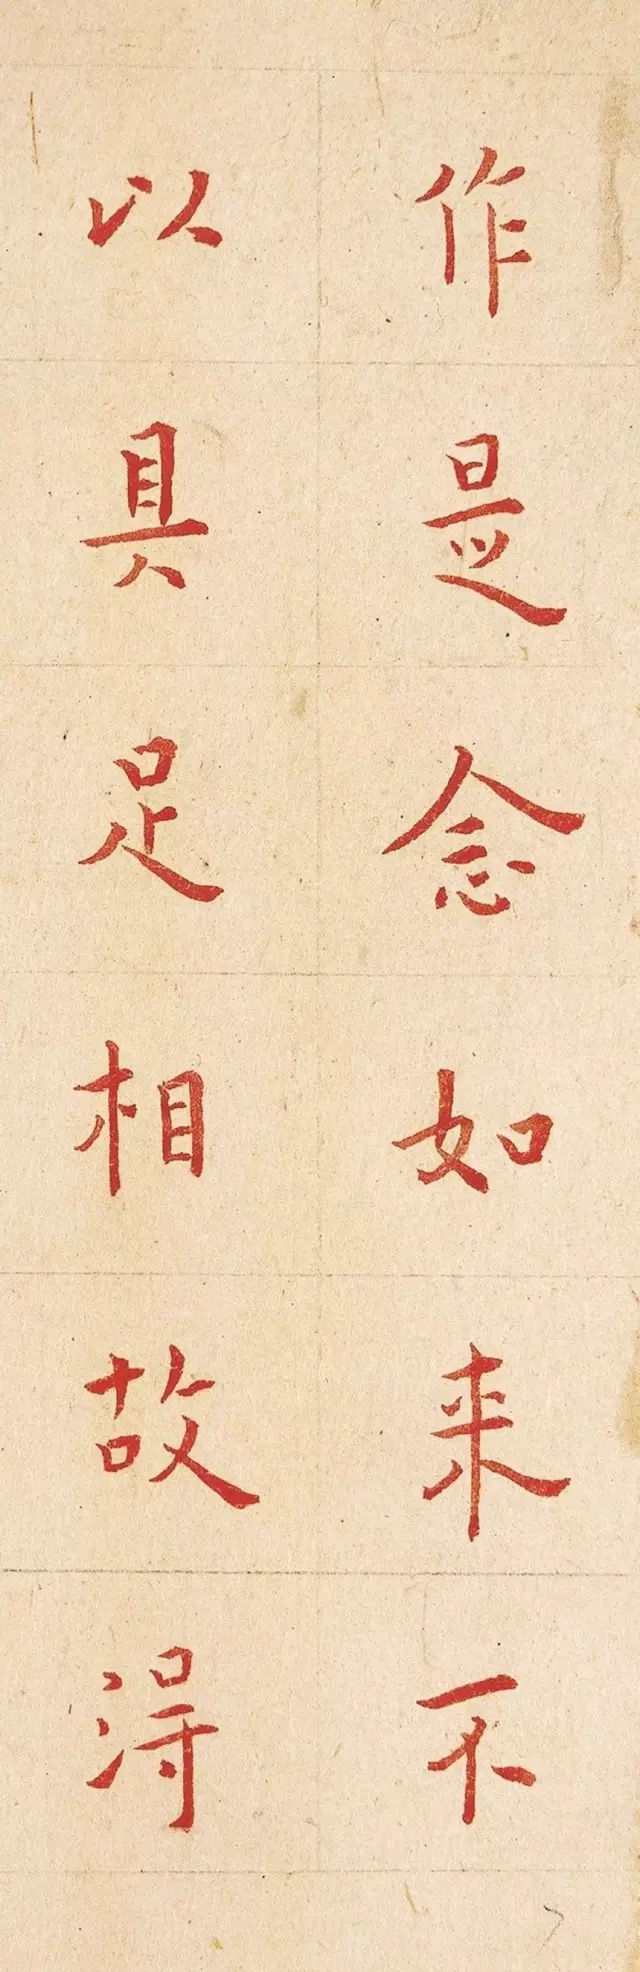 作是念如来不
以具足相故得